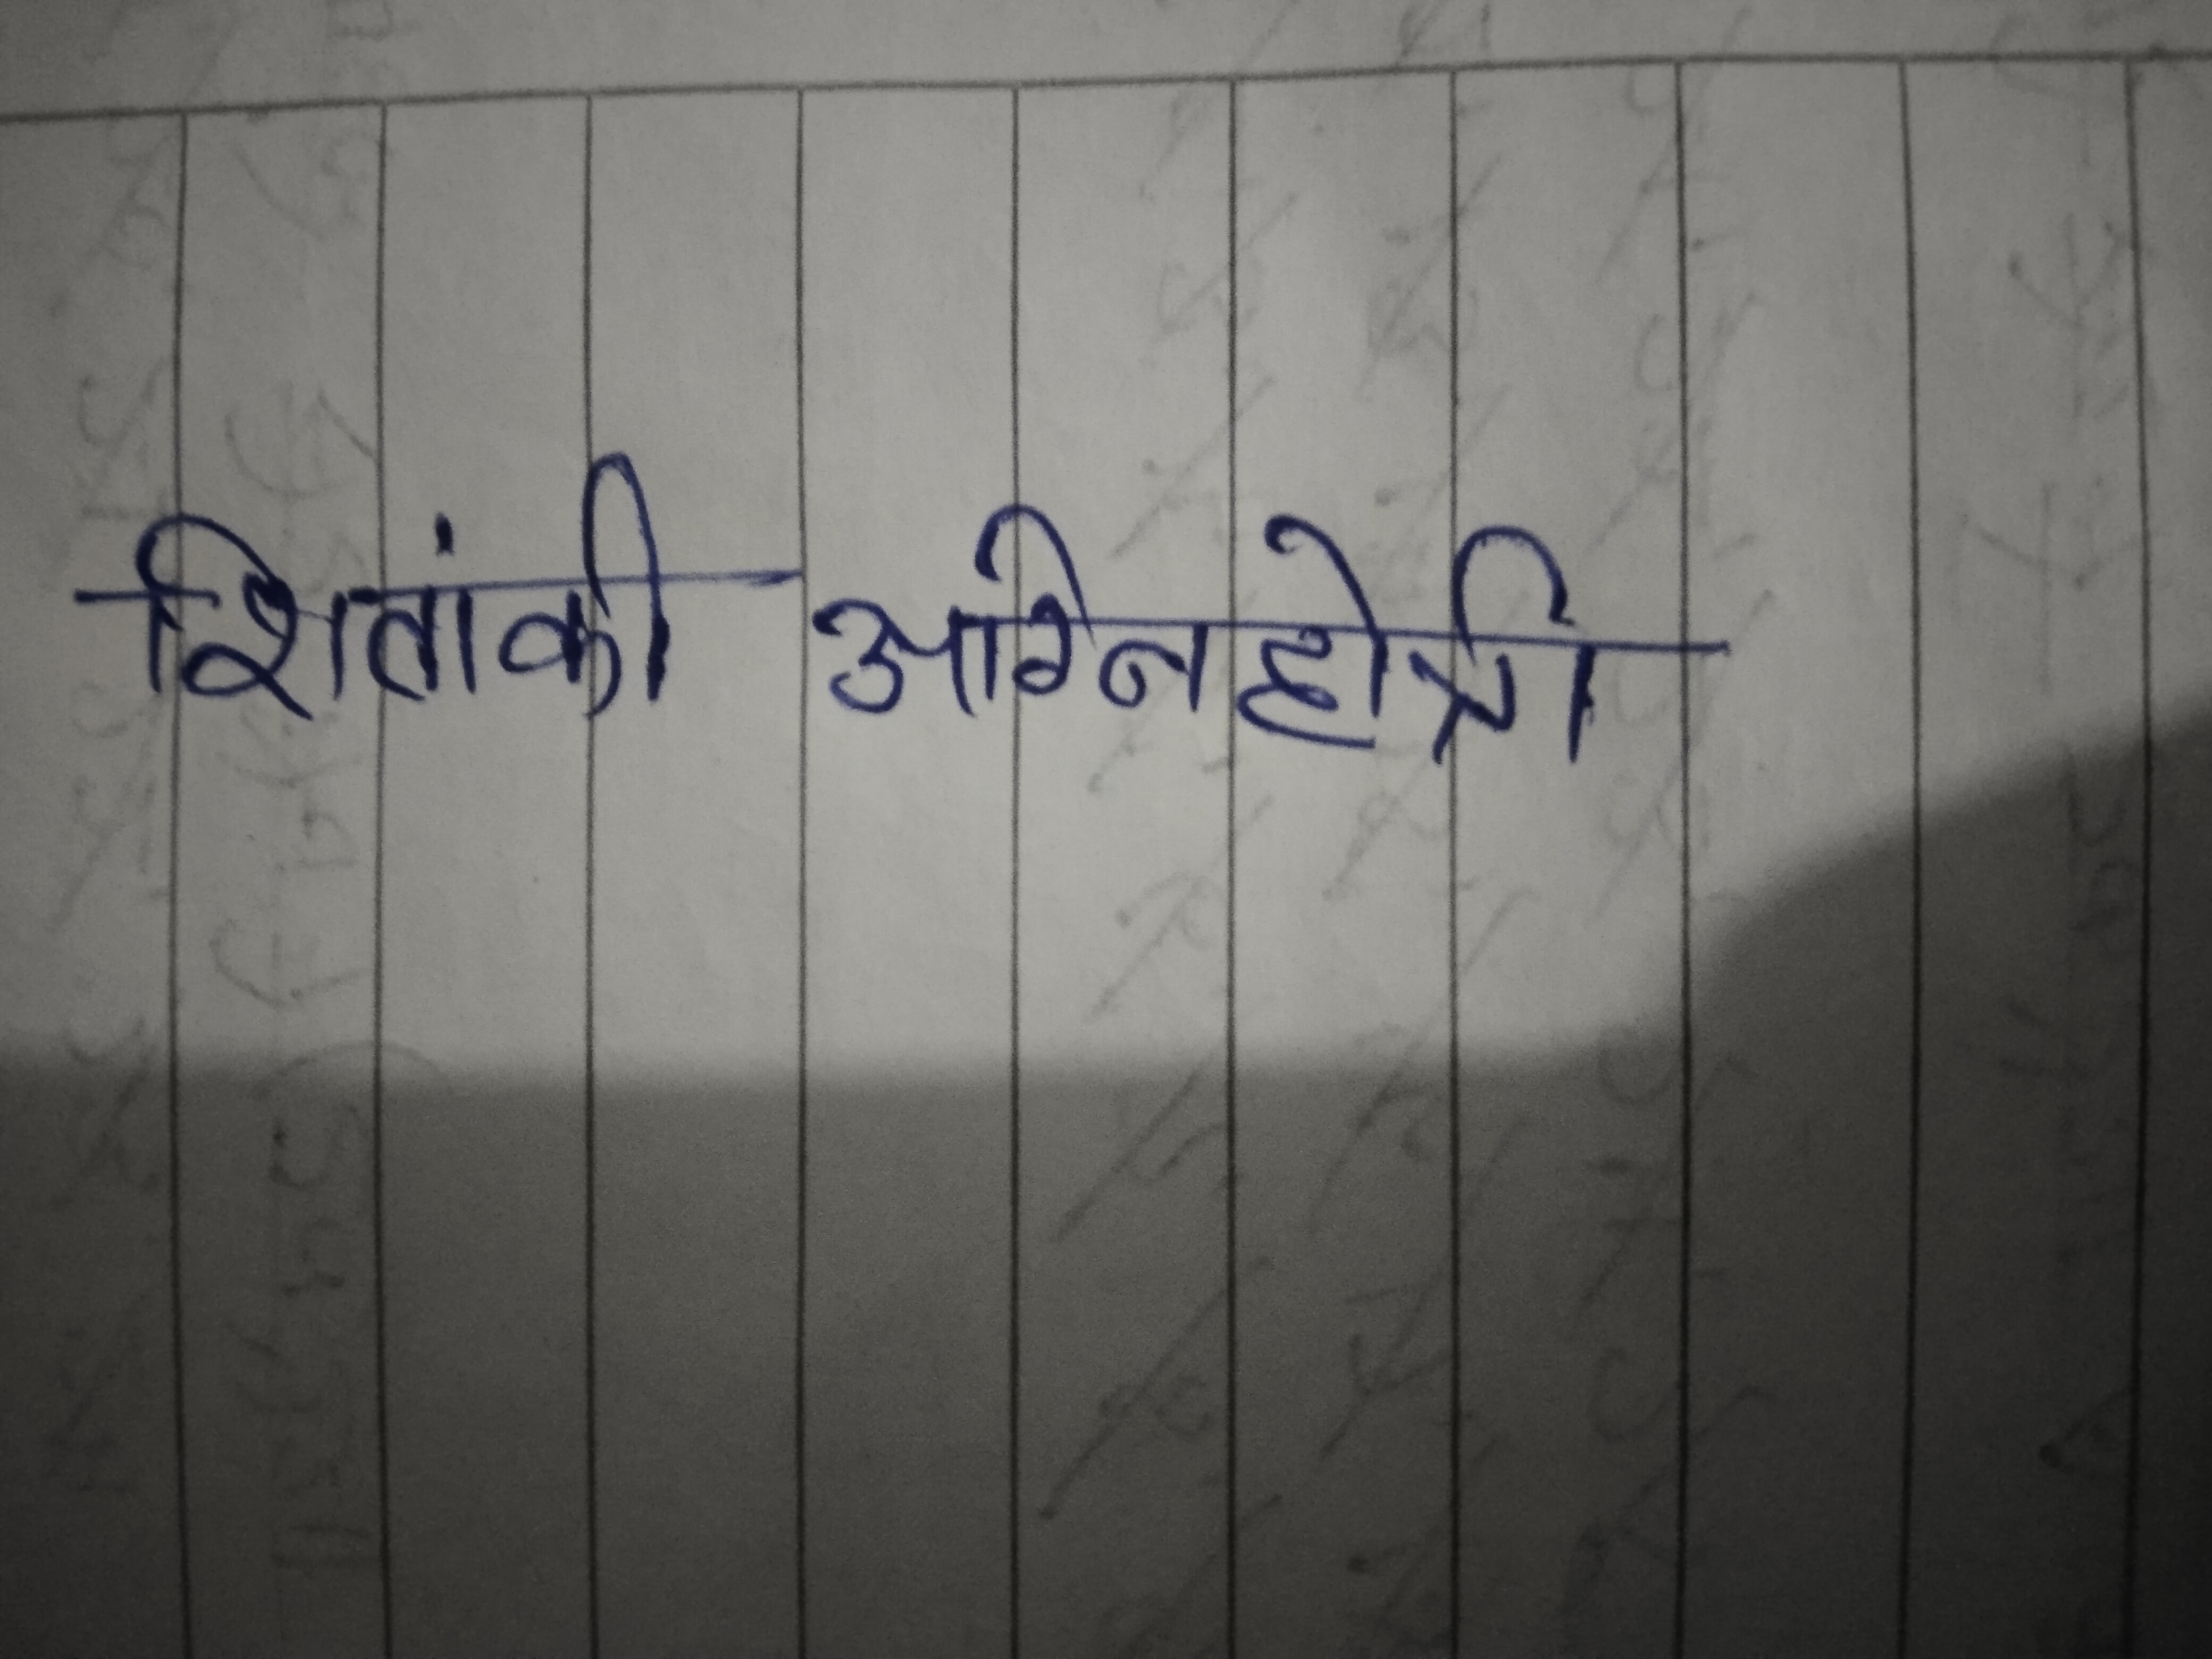 शितांकी अग्निहोत्री